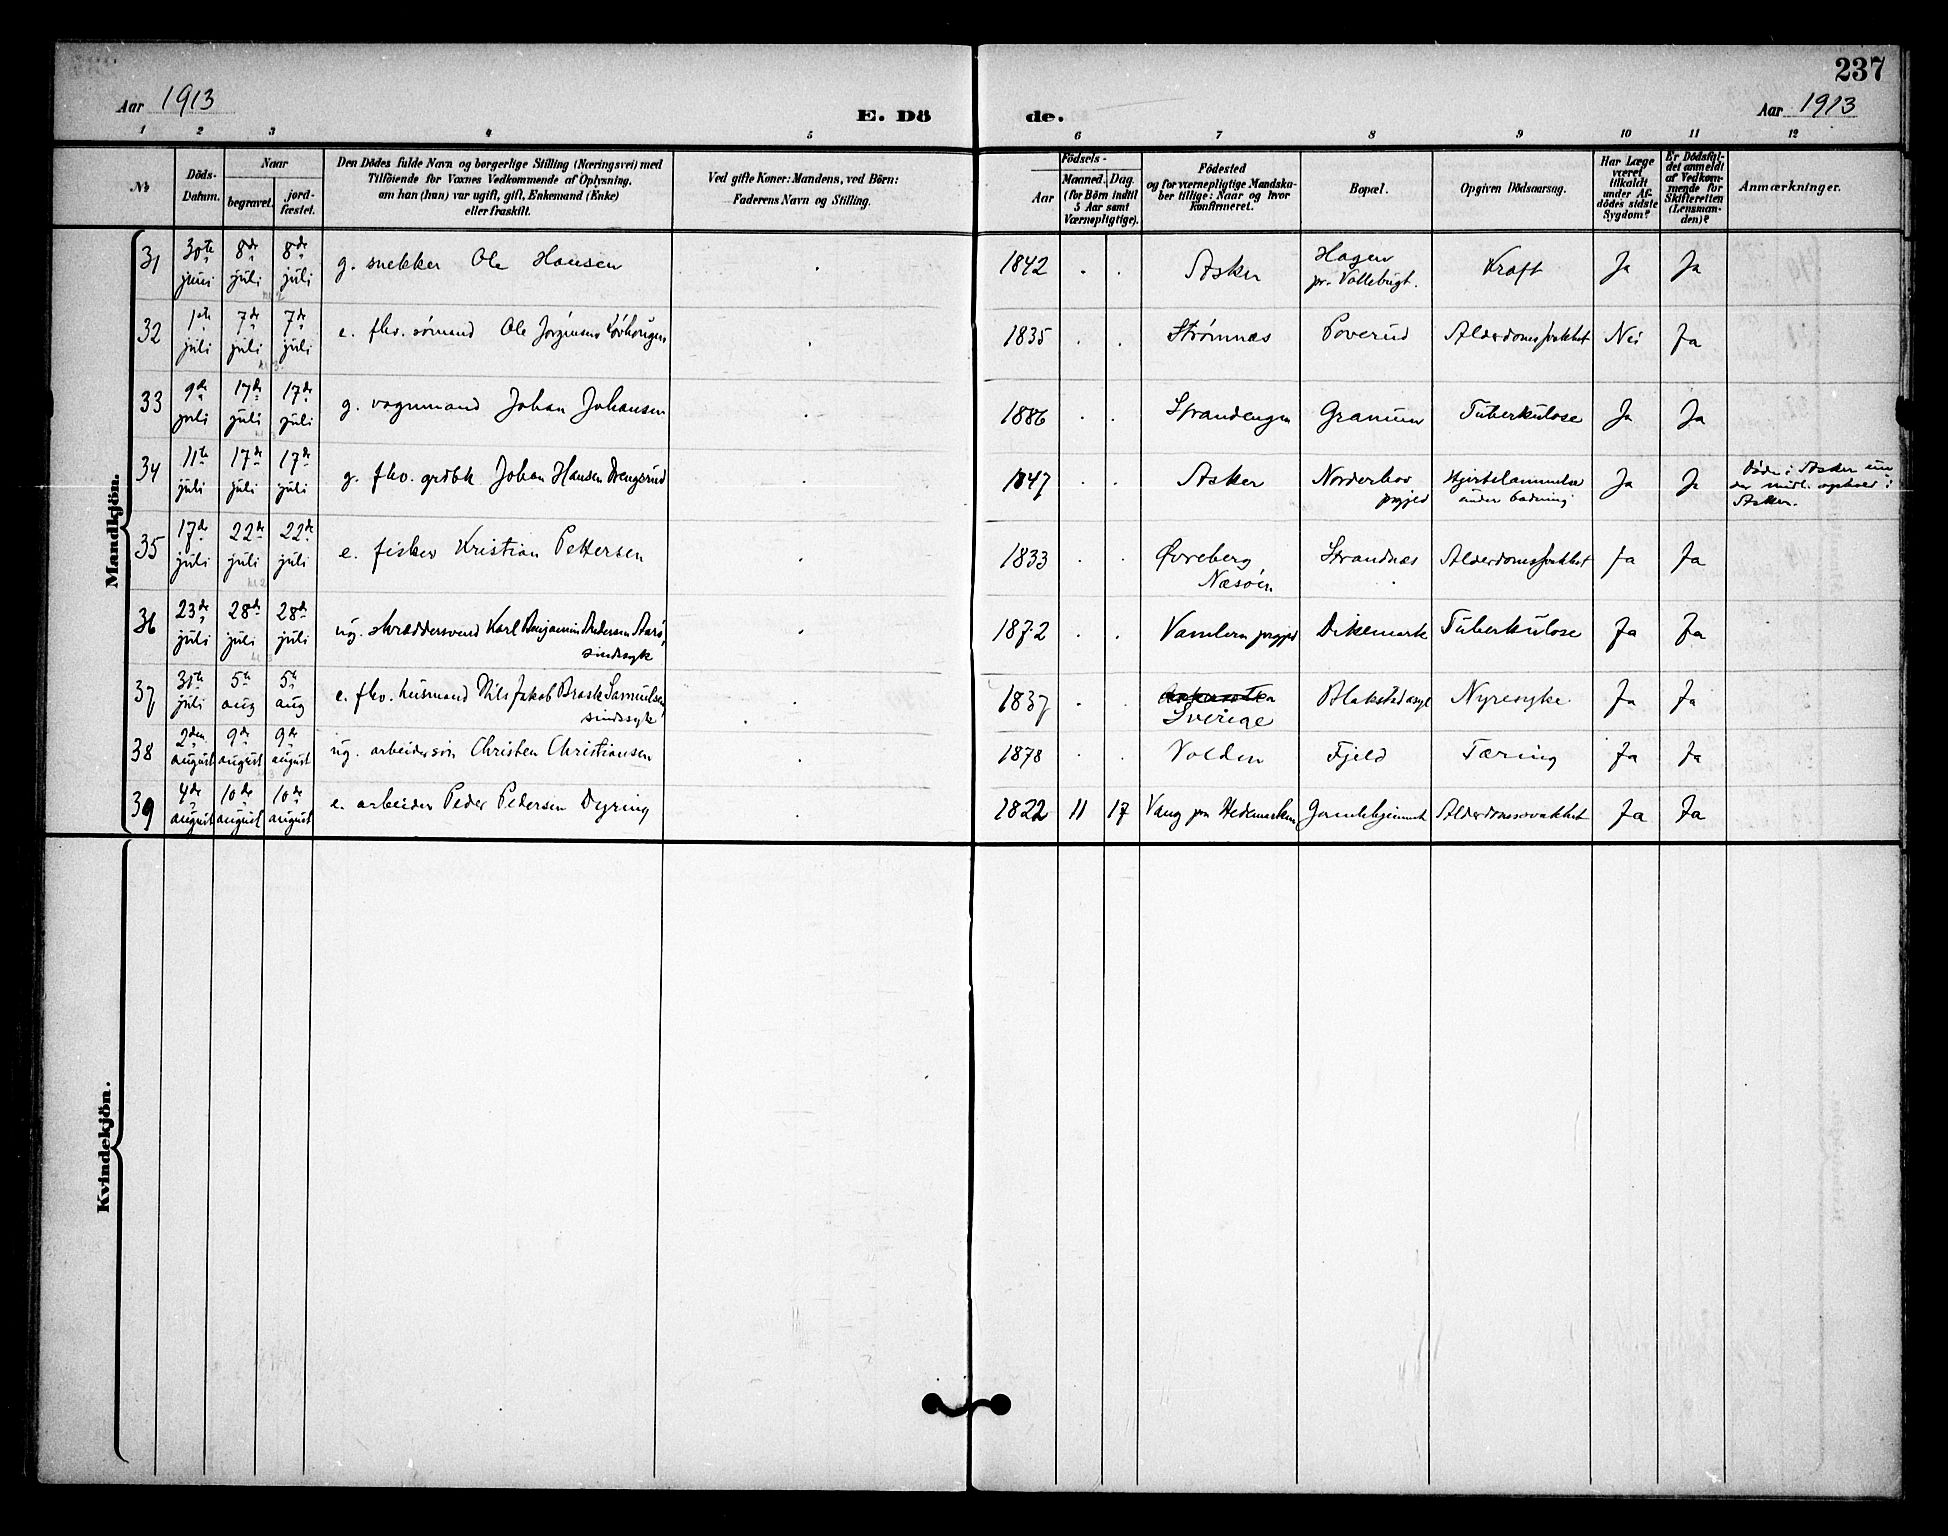 237
Aar 1913
E. Döde.
Aar 1913
1 2 3 4 5 6 7 8 9 10 11 12
No
Döds-Datum.
Naar
begravet.
jord-fæstet.
Den Dödes fulde Navn og borgerlige Stilling (Næringsvei) med
Tilföiende for Voxnes Vedkommende af Oplysning,
om han (hun) var ugift, gift, Enkemand (Enke)
eller fraskilt.
Ved gifte Koner: Mandens, ved Börn:
Faderens Navn og Stilling.
Födsels-
Aar
Maaned. Dag.
(for Börn indtil
5 Aar samt
Værnepligtige).
Födested
og for værnepligtige Mandska-
ber tillige: Naar og hvor
Konfirmeret.
Bopæl.
Opgiven Dödsaarsag.
Har Læge
været
tilkaldt
under Af-
dödes sidste
Sygdom?
Er Dödsfal-
det anmeldt
af Vedkom-
mende for
Skifteretten
(Lensman-
den)?
Anmærkninger.
Mandkjön.
31 30te juni 8de juli 8de juli g. snekker Ole Hansen 1842 Asker Hagen pr. Vollebugt. Kræft Ja Ja
32 1ste juli 7de juli 7de juli e. fhv. sømand Ole Jørgensen 1835 Strømnæs Poverud Alderdomssvakhet Nei Ja
33 9de juli 17de juli 17de juli g. vognmand Johan Johansen 1886 Strandengen Granum Tuberkulose Ja Ja
34 11te juli 17de juli 17de juli g. fhv. grdbk Johan Hansen Drengsrud 1847 Asker Norderhov prgjed Hjertelammelse under badning Ja Ja Døde i Asker un
der midl. ophold i
Asker.
35 17de juli 22de juli 22de juli e. fisker Kristian Pettersen 1833 Øvreberg Næsøen Strandnæs Alderdomssvakhet Ja Ja
36 23de juli 28de juli 28de juli ug. skræddersvend Karl Benjamin Andersen Aarø, sindssyk 1872 prgjed Dikemark Tuberkulose Ja Ja
37 31te juli 5te aug 5te aug e. fhv. husmand Nils Jakob Samuelsen, sindssyk 1837 Sverige Blakstadasyl Nyresyke Ja Ja
38 2den august 9de august 9de august ug. arbeidersøn Christen Christiansen 1878 Volden Fjeld Tæring Ja Ja
39 4de august 10de august 10de august e. arbeider Peder Pedersen Dyring 1822 11 17 Vang paa Hedemarken Gamlehjemmet Alderdomssvakhet Ja Ja
Kvindekjön.